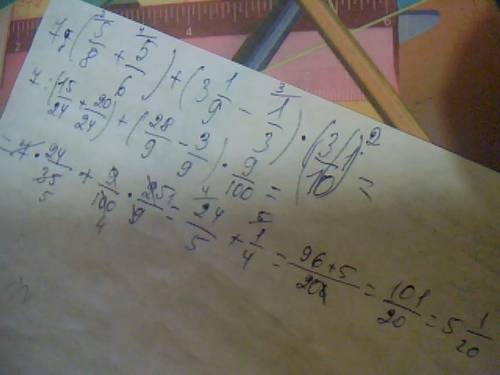 7 : (5/8 + 5/6) + (3 1/9 - 1/3) · (3/10)² =
7 : (15/24 + 20/24) + (28/9 - 3/9) · 9/100 =
= 7 · 24/35 + 9/100 · 25/9 = 24/5 + 1/4 = 96+5/20 = 101/20 = 5 1/20